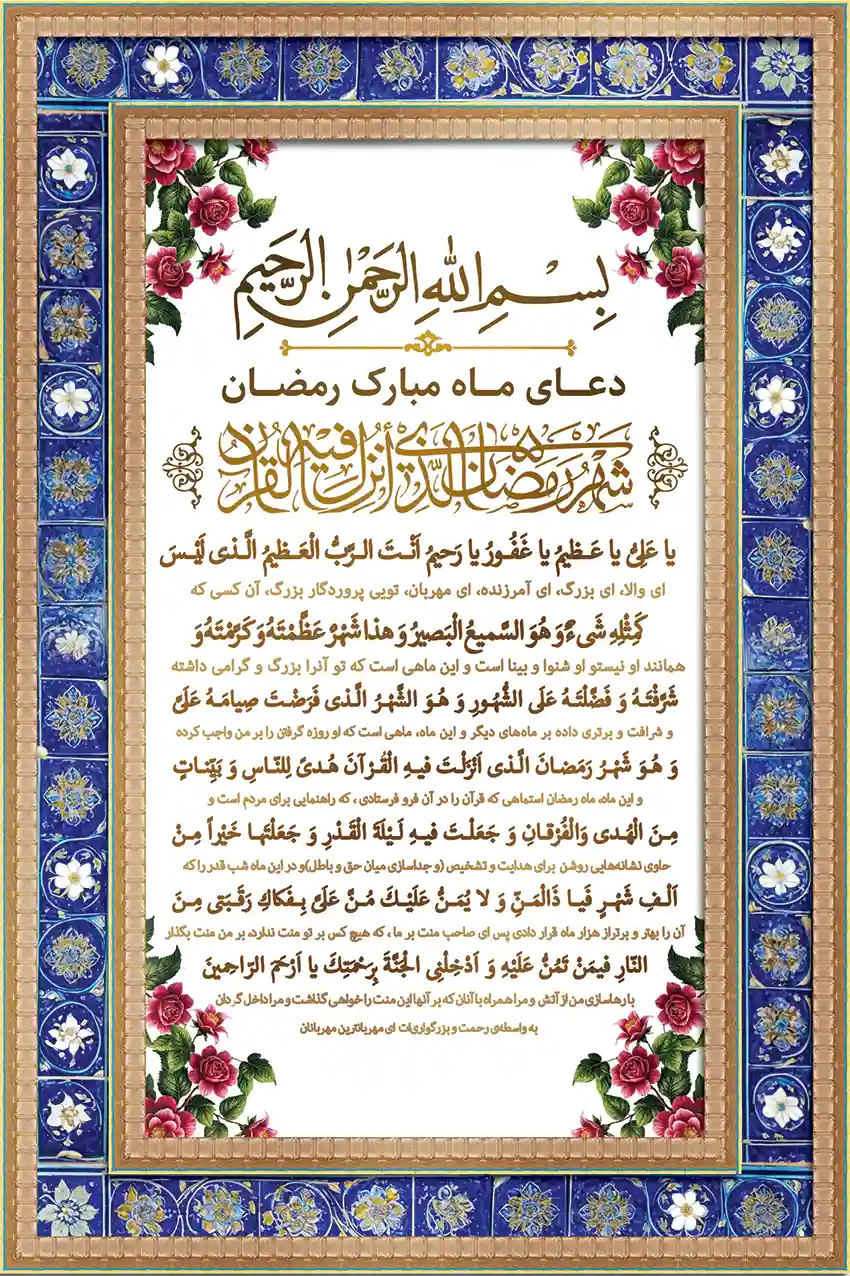 بِسْمِ اللهِ الرَّحْمٰنِ الرَّحِيمِ
دعـــای مـــاه مبارک رمضـــان
شَهْرُ رَمَضَانَ الَّذِي أُنْزِلَ فِيهِ الْقُرْآنُ
یا عَلِیُّ یا عَـظیمُ یا غَفُورُ یا رَحیمُ اَنْـتَ الـرَّبُّ الْعَـظیمُ الَّـذی لَیْـسَ
ای والا، ای بزرگ، ای آمرزنده، ای مهربان، تویی پروردگار بزرگ، آن کسی که
کَمِثْلِهِ شَیءٌ وَ هُوَ السَّمیعُ الْبَصیرُ وَ هذا شَهْرٌ عَظَّمْتَهُ وَ کَرَّمْتَهُ وَ
همانند او نیستو او شنوا و بینا است و این ماهی است که تو آنرا بزرگ و گرامی داشته
شَرَّفْتَـهُ وَ فَضَّلْتَـهُ عَلَی الشُّهُورِ وَ هُـوَ الشَّهْرُ الَّـذی فَرَضْـتَ صِیامَـهُ عَلَیَّ
و شرافت و برتری داده بر ماه‌های دیگر و این ماه، ماهی است که او روزه گرفتن را بر من واجب کرده
وَ هُـوَ شَهْـرُ رَمَضـانَ الَّـذی اَنْزَلْـتَ فیـهِ الْقُـرْآنَ هُدیً لِلنّـاسِ وَ بَیِّنـاتٍ
و این ماه، ماه رمضان استماهی که قرآن را در آن فرو فرستادی ، که راهنمایی برای مردم است و
مِـنَ الْهُـدی وَالْفُرْقـانِ وَ جَعَلْـتَ فیـهِ لَـیْلَةَ الْقَـدْرِ وَ جَعَلْتَهـا خَیْـراً مِـنْ
حاوی نشانه‌هایی روشن برای هدایت و تشخیص (و جداسازی میان حق و باطل)و در این ماه شب قدر را که
اَلْـفِ شَهْـرٍ فَیـا ذَالْمَـنِّ وَ لا یُمَـنُّ عَلَیْـكَ مُـنَّ عَلَیَّ بِـفَکاكِ رَقَـبَتی مِـنَ
آن را بهتر و برتراز هزار ماه قرار دادی پس ای صاحب منت بر ما ، که هیچ کس بر تو منت ندارد، بر من منت بگذار
النّارِ فیمَنْ تَمُنُّ عَلَیْهِ وَ اَدْخِلْنِی الْجَنَّةَ بِرَحْمَتِكَ یا اَرْحَمَ الرّاحِمینَ
با رهاسازی من از آتش و مرا همراه با آنان که بر آنها این منت را خواهی گذاشت و مرا داخل گردان
به واسطه‌ی رحمت و بزرگواری‌ات ای مهربانترین مهربانان